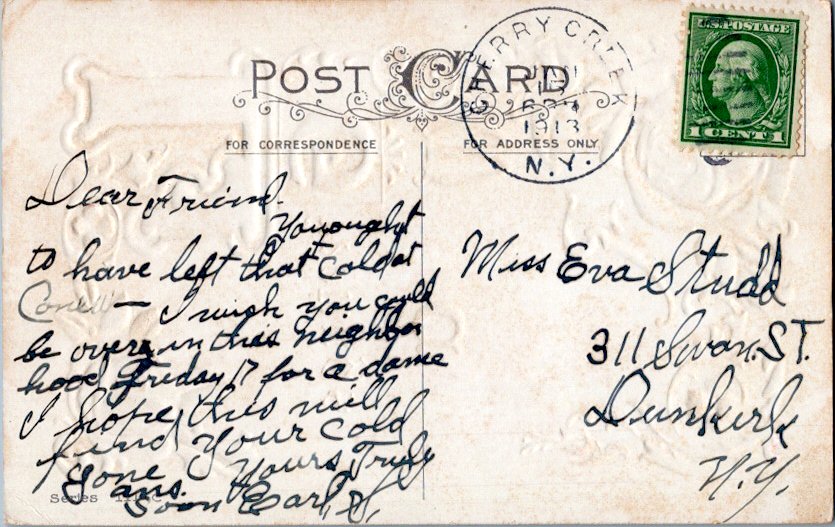 POST CARD
CHERRY CREEK
JAN
1913
N.Y.
U.S. POSTAGE
1 CENT 1
FOR CORRESPONDENCE
FOR ADDRESS ONLY
Dear Friend.
You ought
to have left that cold at
I wish you could
be over in this neighbor
hood Friday 17 for a dance
I hope this will
find your cold
gone Yours Truly
ans. Soon Earl
Series
Miss Eva Studd
311 Swan. ST.
Dunkirk
N.Y.